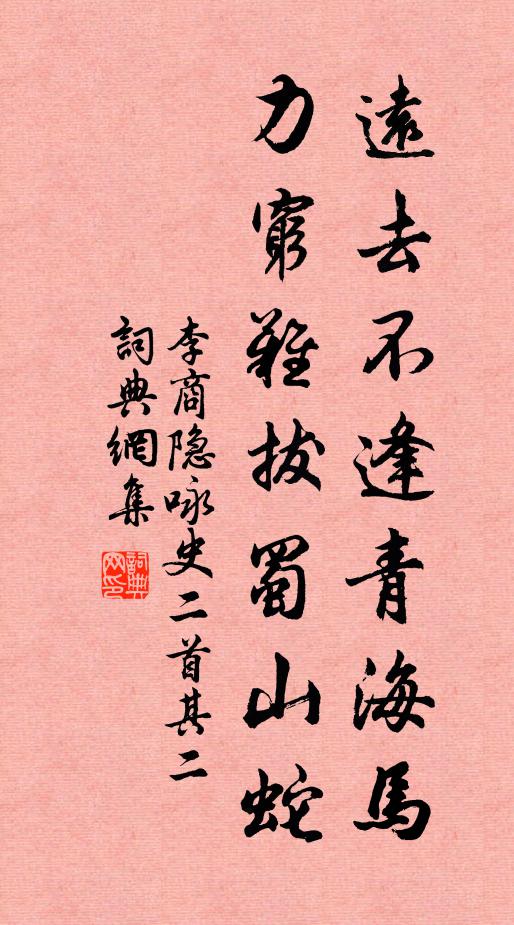 遠去不逢青海馬
力窮難拔蜀山蛇
李商隐咏史二首其二
詞典網集
詞典网印